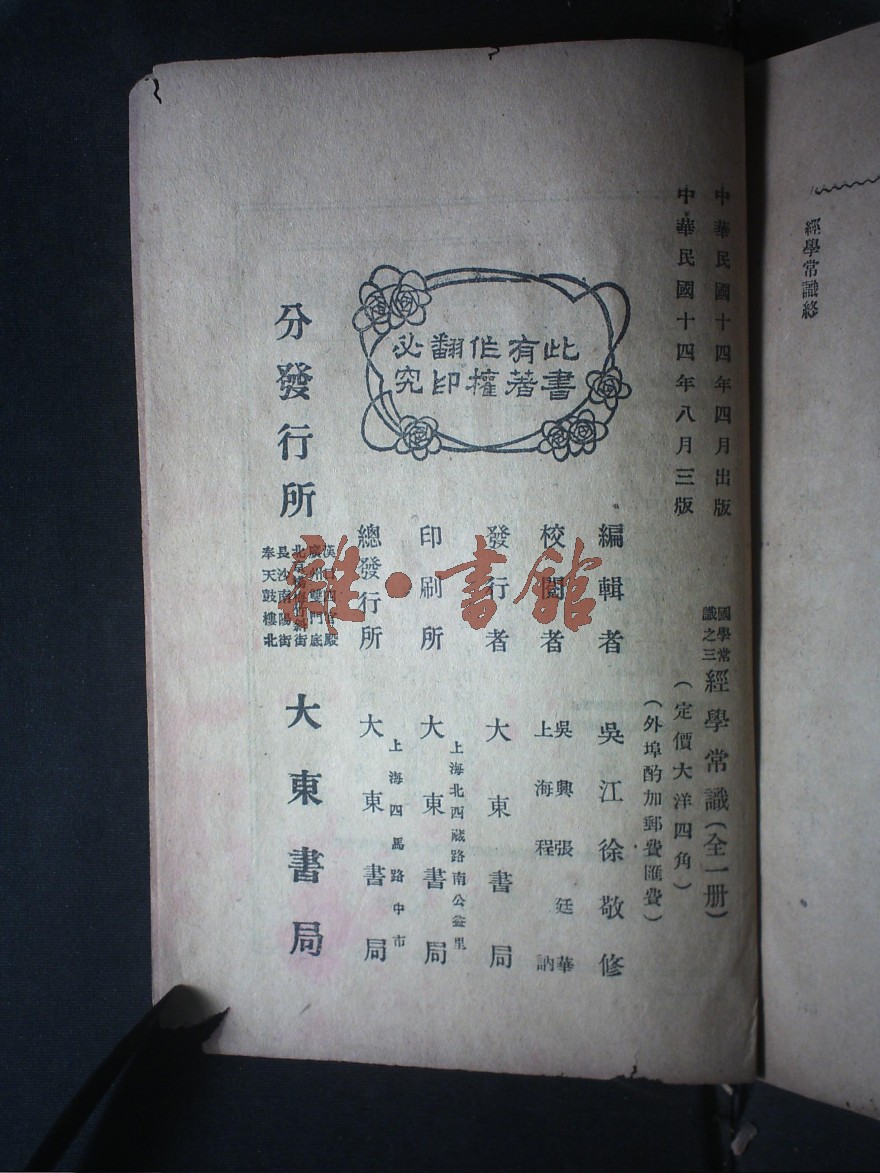 經學常識終
中華民國十四年四月出版
中華民國十四年八月三版
國學常識之三
經學常識（全一冊）
（定價大洋四角）
（外埠酌加郵費匯費）
此書有著作權翻印必究
編輯者 吳江徐敬修
校閱者 吳興張廷華
上海程訥
發行者 大東書局
印刷所 上海北西藏路南公益里
大東書局
總發行所 上海四馬路中市
大東書局
分發行所
漢口四官殿
廣州雙門底
北京楊梅竹斜街
長沙南陽街
奉天鼓樓北
大東書局
雜·書館